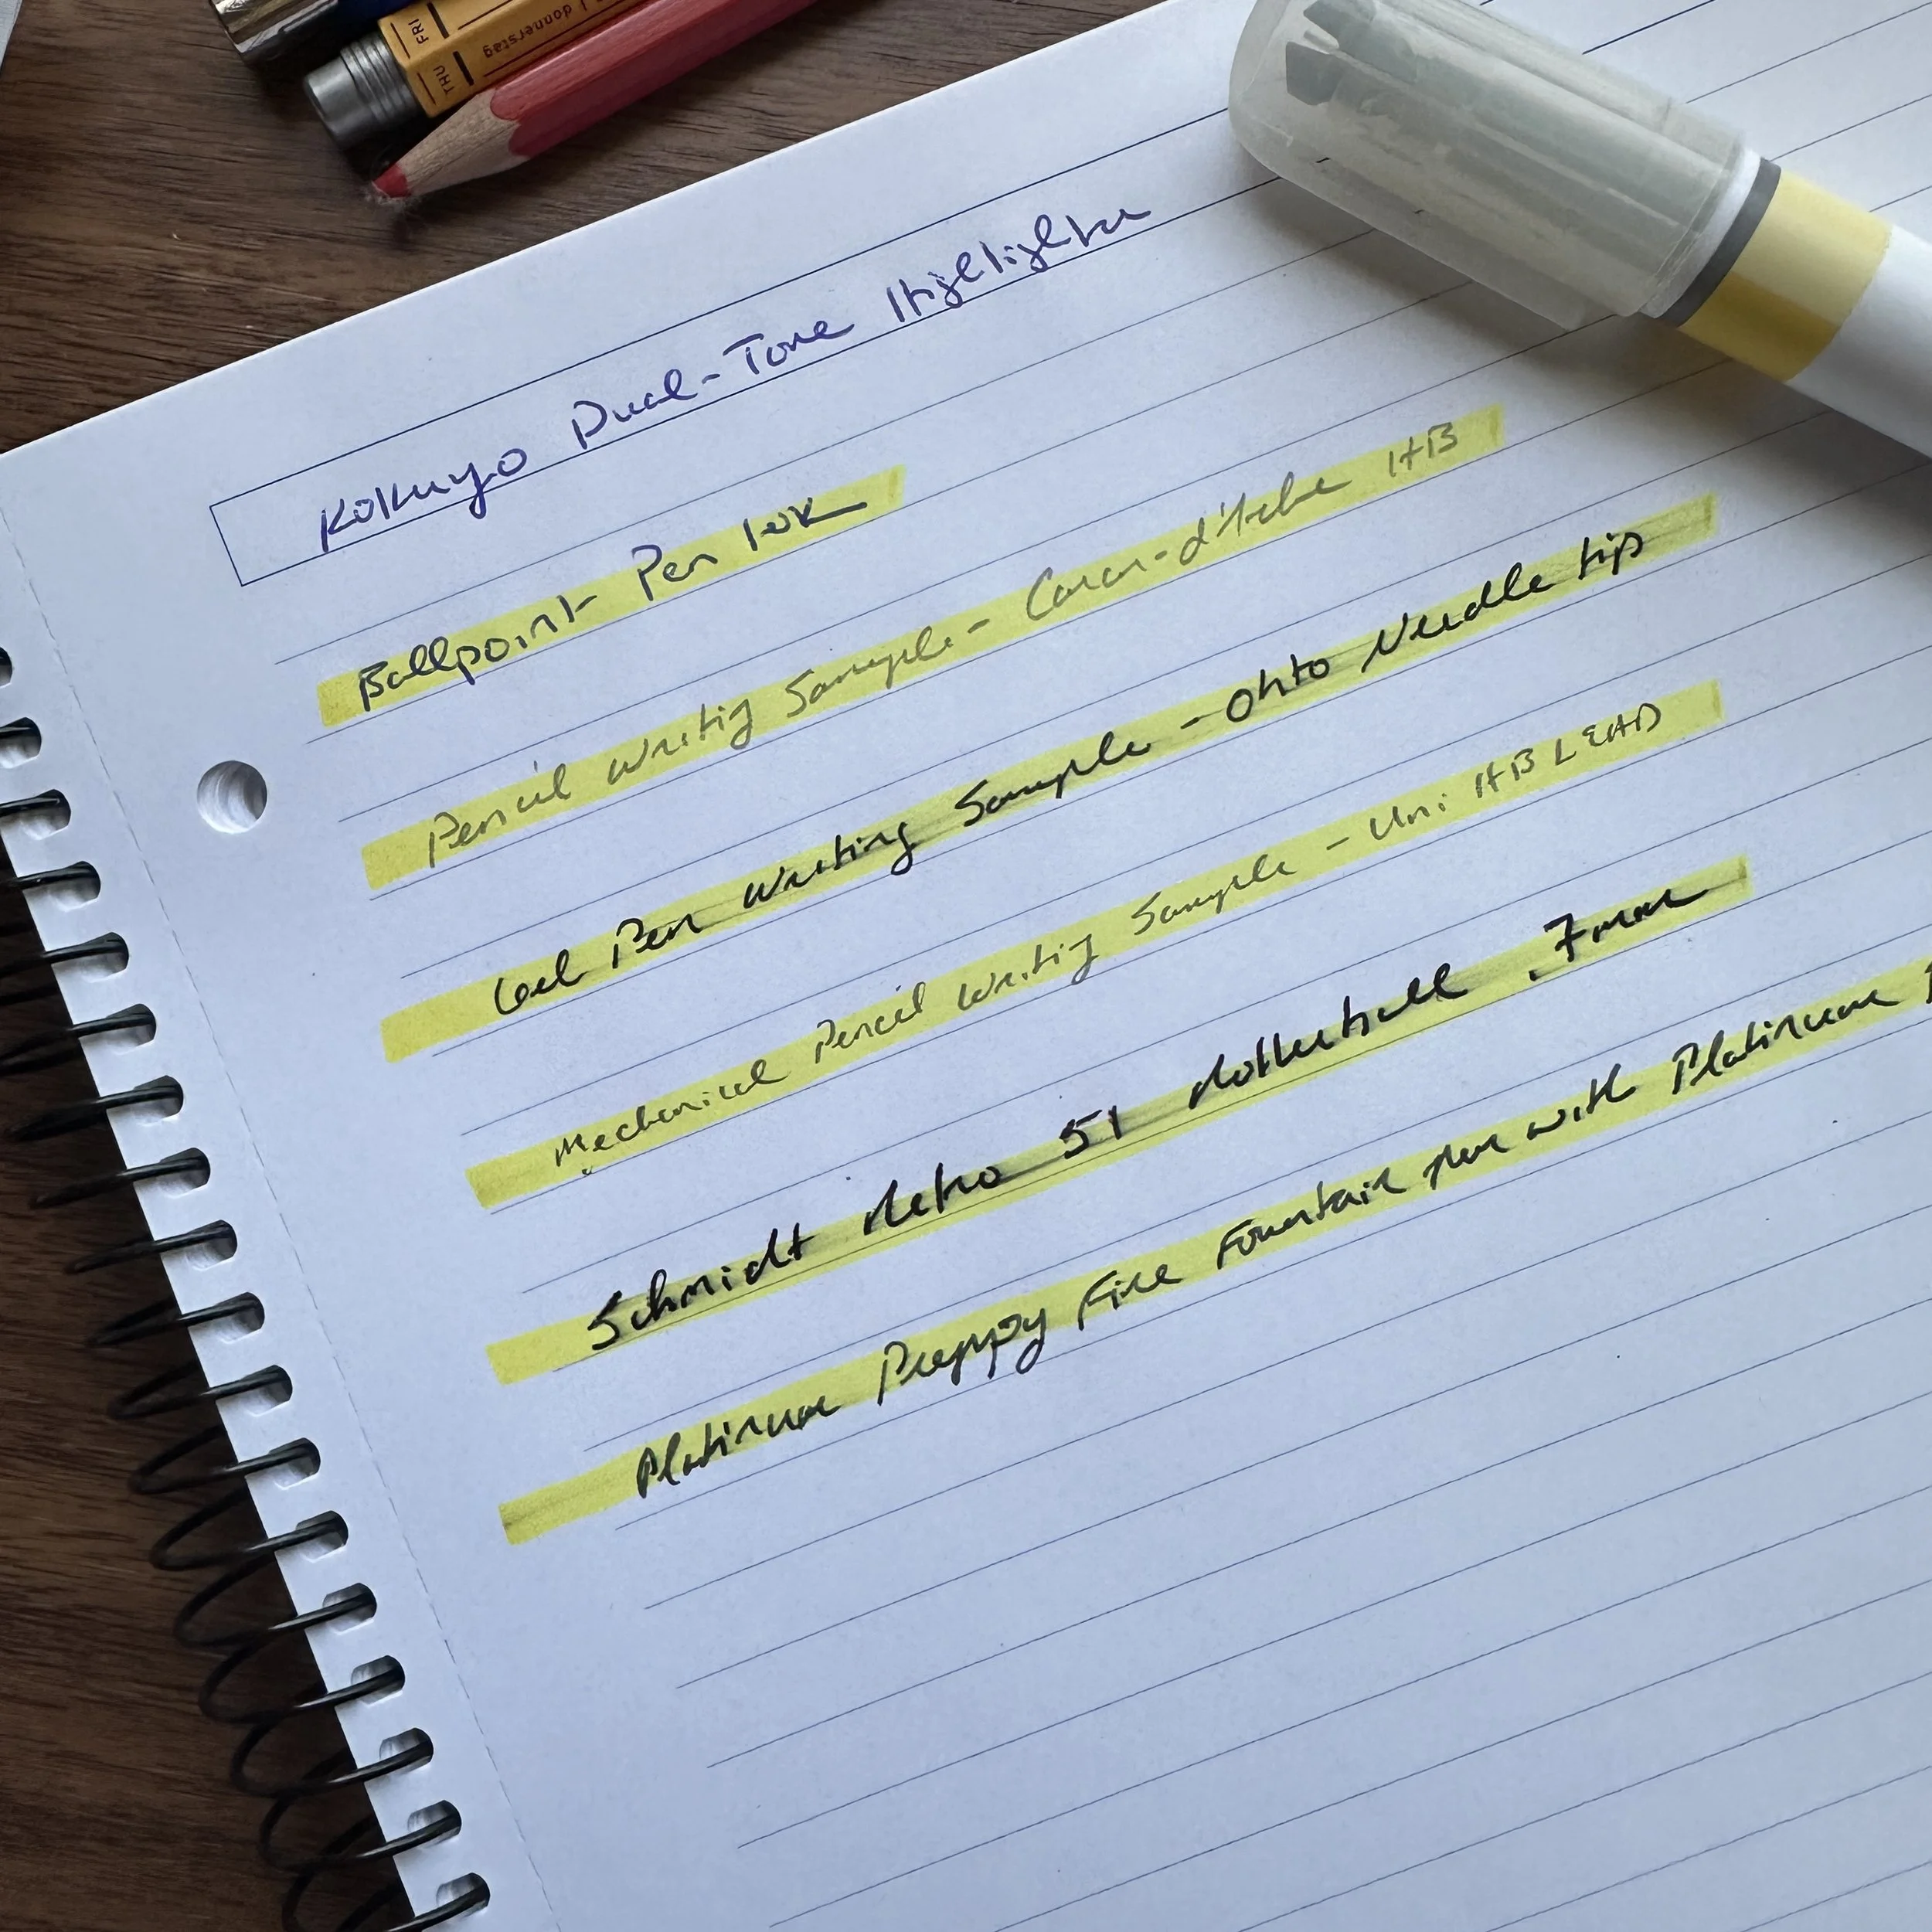 FRI
THU donnerstag
Kokuyo Dual-Tone Highlighter
Ballpoint Pen
Pencil Writing Sample - Caran-d'Ache HB
Gel Pen Writing Sample - Ohto Needle tip
Mechanical Pencil Writing Sample - Uni HB LEAD
Schmidt Retro 51 Rollerball .7mm
Platinum Preppy Fine Fountain pen with Platinum